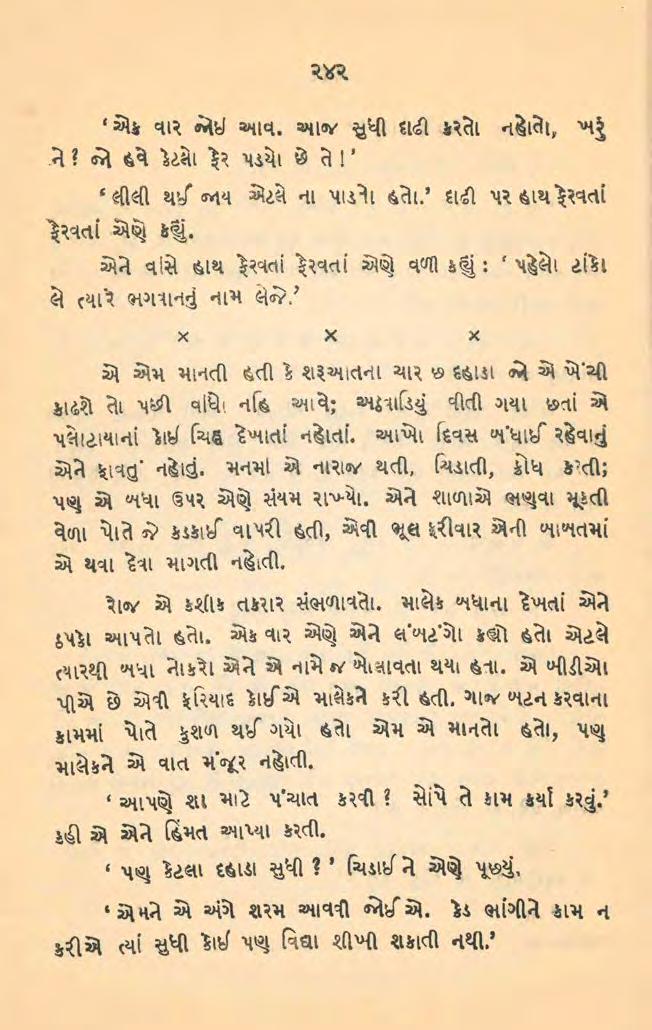 ૨૪૨
‘એક વાર જોઈ આવ. આજ સુધી દાઢી કરતો નહોતો, ખરૂં
ને? જો હવે કેટલો ફેર પડયો છે તે!’
‘લીલી થઈ જાય એટલે ના પાડતો હતો.’ દાઢી પર હાથ ફેરવતાં
ફેરવતાં એણે કહ્યું.
એને વાંસે હાથ ફેરવતાં ફેરવતાં એણે વળી કહ્યું : ‘પહેલો ટાંકો
લે ત્યારે ભગવાનનું નામ લેજે.’
× × ×
એ એમ માનતી હતી કે શરૂઆતના ચાર છ દહાડા જો એ ખેંચી
કાઢશે તો પછી વાંધો નહિ આવે; અઠવાડિયું વીતી ગયા છતાં એ
પલોટાયાનાં કોઈ ચિહ્ન દેખાતાં નહોતાં. આખો દિવસ બંધાઈ રહેવાનું
એને ફાવતું નહોતું. મનમાં એ નારાજ થતી, ચિડાતી, ક્રોધ કરતી;
પણ એ બધા ઉપર એણે સંયમ રાખ્યો. એને શાળાએ ભણવા મૂકતી
વેળા પોતે જે કડકાઈ વાપરી હતી, એવી ભૂલ ફરીવાર એની બાબતમાં
એ થવા દેવા માગતી નહોતી.
રોજ એ કશીક તકરાર સંભળાવતો. માલેક બધાના દેખતાં એને
ઠપકો આપતો હતો. એક વાર એણે એને લંબટંગો કહ્યો હતો એટલે
ત્યારથી બધા નોકરો એને એ નામે જ બોલાવતા થયા હતા. એ બીડીઓ
પીએ છે એવી ફરિયાદ કોઈએ માલેકને કરી હતી. ગાજ બટન કરવાના
કામમાં પોતે કુશળ થઈ ગયો હતો એમ એ માનતો હતો, પણ
માલેકને એ વાત મંજૂર નહોતી.
‘આપણે શા માટે પંચાત કરવી? સોંપે તે કામ કર્યા કરવું.’
કહી એ એને હિંમત આપ્યા કરતી.
‘પણ કેટલા દહાડા સુધી?’ ચિડાઈ ને એણે પૂછયું.
‘એમને એ અંગે શરમ આવવી જોઈએ. કેડ ભાંગીને કામ ન
કરીએ ત્યાં સુધી કોઈ પણ વિદ્યા શીખી શકાતી નથી.’